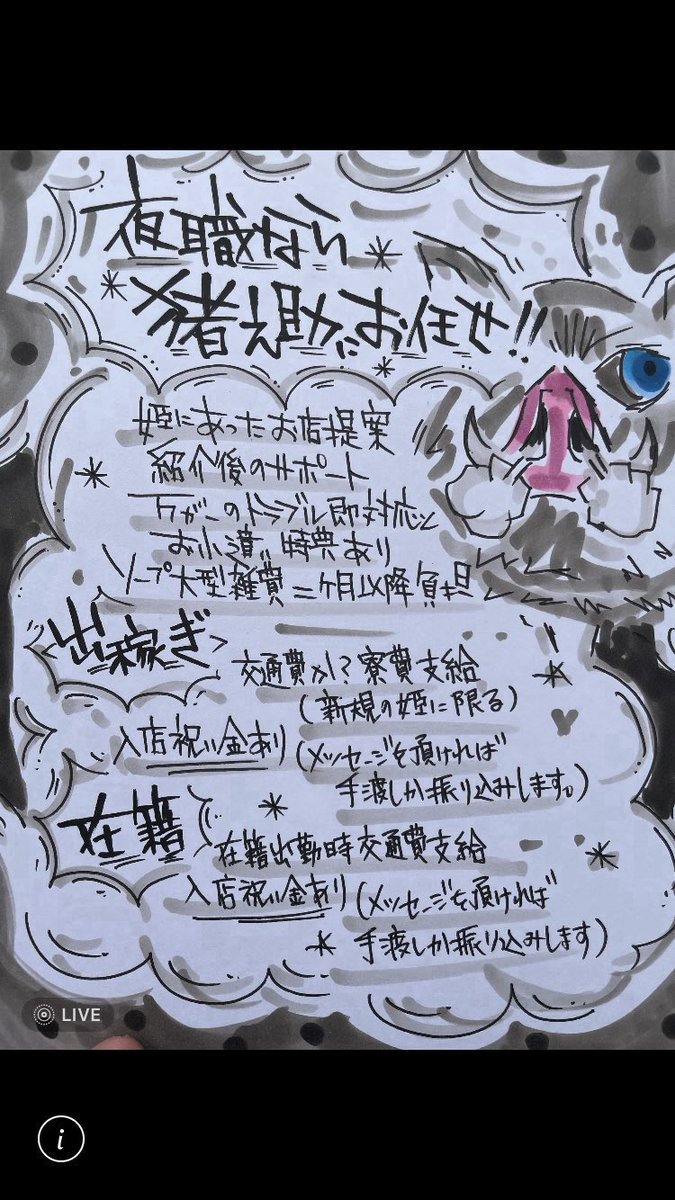 夜職なら
猪之助にお任せ!!
姫にあったお店提案
紹介後のサポート
万が一のトラブル即対応と
お小遣い特典あり
ソープ大型雑費二ヶ月以降負担
出稼ぎ
交通費か!?寮費支給
(新規の姫に限る)
入店祝い金あり(メッセージを頂ければ
手渡しか振り込みします。)
在籍
在籍出勤時交通費支給
入店祝い金あり(メッセージを頂ければ
手渡しか振り込みします)
LIVE
i